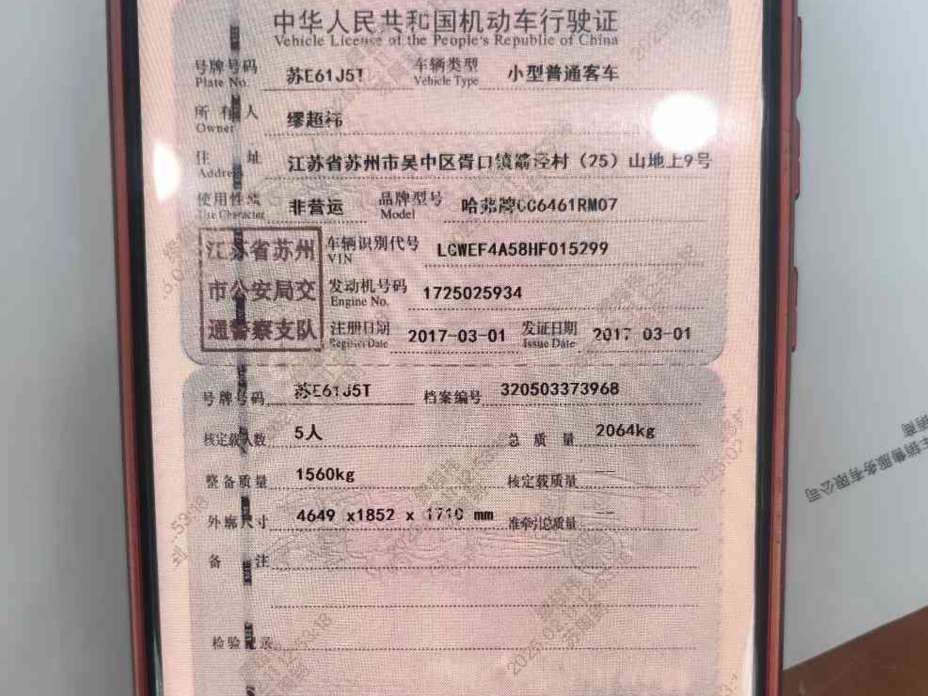 中华人民共和国机动车行驶证
Vehicle License of the People's Republic of China
号牌号码 苏E61J5T 车辆类型 小型普通客车
Plate No. Vehicle Type
所有人 缪超祎
Owner
住址 江苏省苏州市吴中区胥口镇箭泾村（25）山地上9号
Address
使用性质 非营运 品牌型号 哈弗牌CC6461RM07
Use Character Model
江苏省苏州 车辆识别代号 LGWEF4A58HF015299
VIN
市公安局交 发动机号码 1725025934
Engine No.
通警察支队 注册日期 2017-03-01 发证日期 2017-03-01
Register Date Issue Date
号牌号码 苏E61J5T 档案编号 320503373968
核定载人数 5人 总质量 2064kg
整备质量 1560kg 核定载质量 --
外廓尺寸 4649 x1852 x 1710 mm 准牵引总质量 --
备注
检验记录
车销售服务有限公司